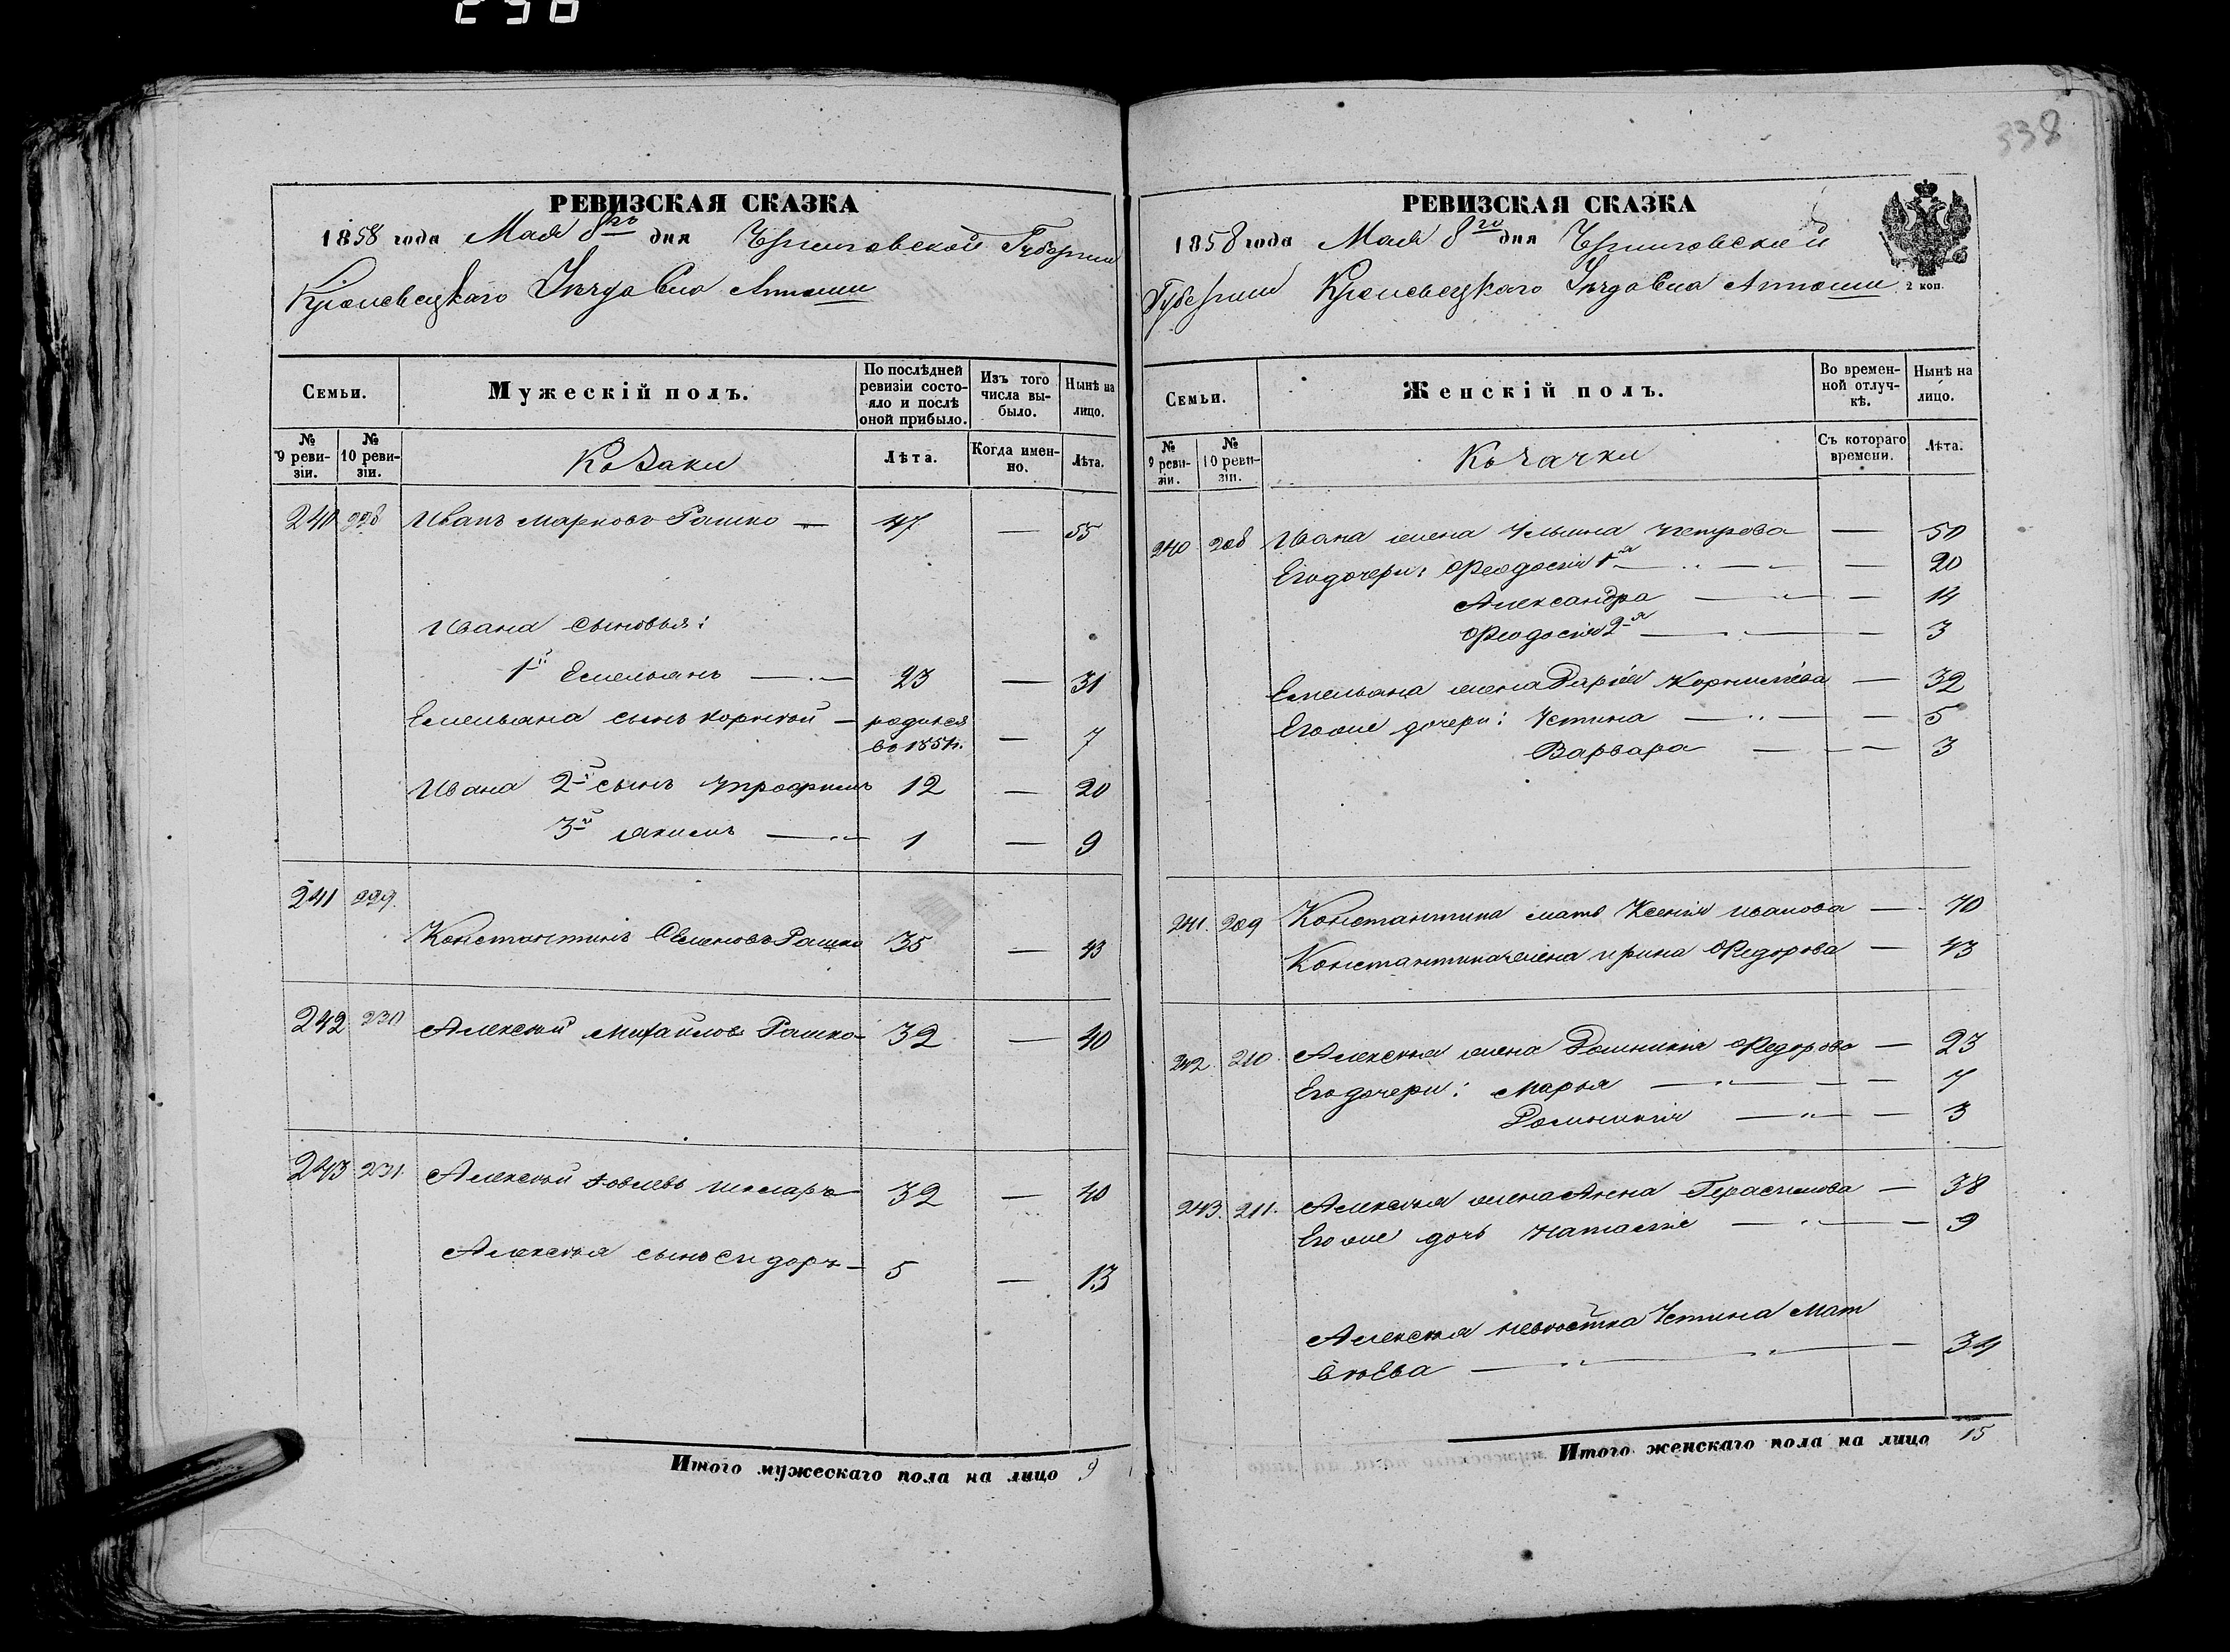 298
338
РЕВИЗСКАЯ СКАЗКА
1858 года Мая 8го дня Черниговской Губерніи
Кролевецкаго Уѣзда
Семьи.
Мужескій полъ.
По послѣдней ревизіи состояло и послѣ оной прибыло.
Изъ того числа выбыло.
Нынѣ на лицо.
№ 9 ревизіи.
№ 10 ревизіи.
Козаки
Лѣта.
Когда именно.
Лѣта.
240 228 Иванъ Марковъ Рашко — 47 — 55
Ивана Сыновья:
1й Емельянъ — 23 — 31
Емельяна сынъ Корнѣй — родился
во 1851г. — 7
Ивана 2й сынъ Трофимъ 12 — 20
3й Акимъ — 1 — 9
241 229.
Константинъ Семеновъ Рашко 35 — 43
242 230 Алексѣй Михайловъ Рашко 32 — 40
243 231. Алексѣй Іовлевъ Шкларъ 32 — 40
Алексѣя сынъ Сидоръ — 5 — 13
Итого мужескаго пола на лицо 9
РЕВИЗСКАЯ СКАЗКА
1858 года Мая 8го дня Черниговской
Губерніи Кролевецкаго Уѣзда
2 коп.
Семьи.
Женскій полъ.
Во временной отлучкѣ.
Нынѣ на лицо.
№ 9 ревизіи.
№ 10 ревизіи.
Козачки
Съ котораго времени.
Лѣта.
240 208 Ивана жена Ульяна Петрова — 50
Его дочери: Феодосія 1я — 20
Александра — 14
Феодосія 2я — 3
Емельяна жена Дарія Корнилѣева — 32
Егоже дочери: Устина — 5
Варвара — 3
241. 209 Константина мать Ксенія Иванова — 70
Константина жена Ирина Федорова — 43
242. 210 Алексѣя жена Домникія Федорова — 23
Его дочери: Марья — 7
Домникія — 3
243. 211. Алексѣя жена Анна Герасимова — 38
Егоже дочь Наталія — 9
Алексѣя невѣстка Устина Мат
вѣева — 34
Итого женскаго пола на лицо 15